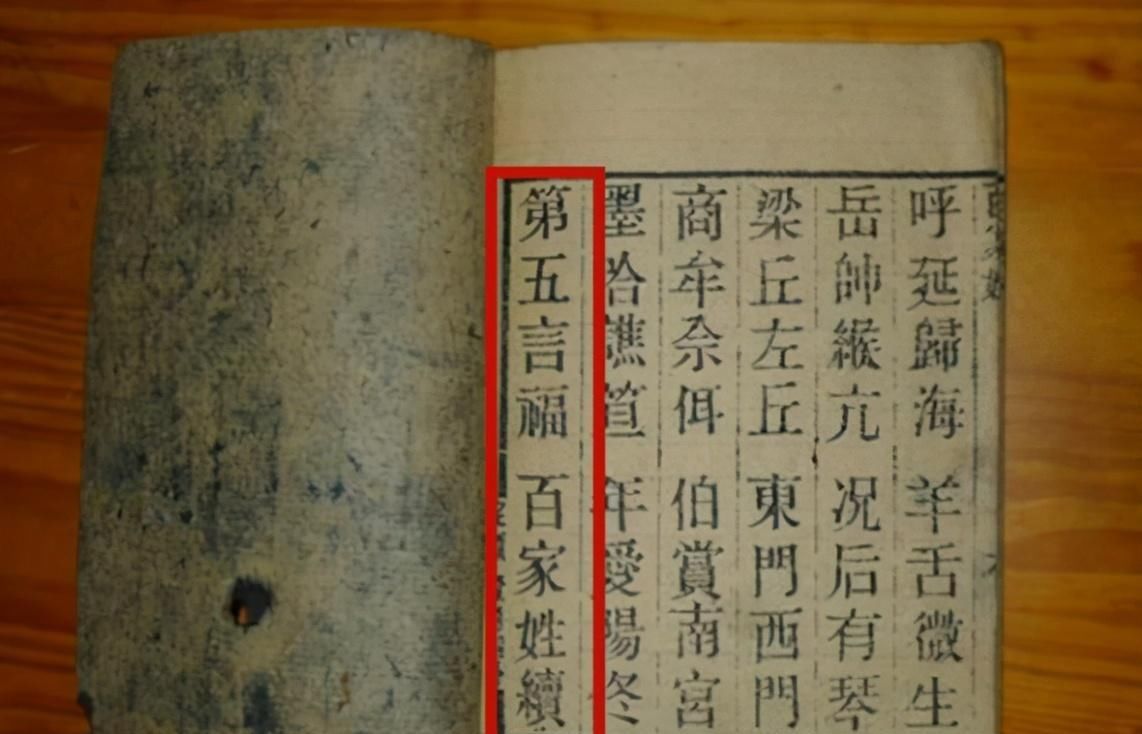 呼延歸海羊舌微生
岳帥緱亢況后有琴
梁丘左丘東門西門
商牟佘佴伯賞南宮
墨哈譙笪年愛陽佟
第五言福百家姓續